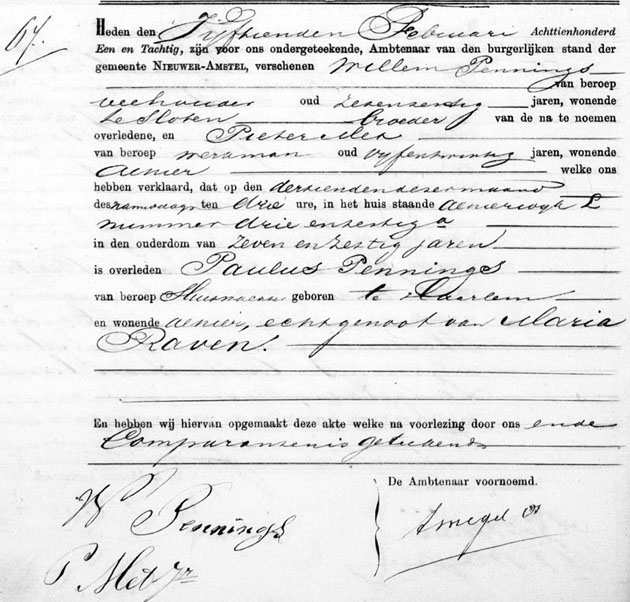 67.
Heden den Vyftienden Februari Achttienhonderd
Een en Tachtig, zijn voor ons ondergeteekende, Ambtenaar van den burgerlijken stand der
gemeente NIEUWER-AMSTEL, verschenen Willem Pennings
van beroep
veehouder oud zevenzestig jaren, wonende
te Sloten broeder van de na te noemen
overledene, en Pieter Met
van beroep werkman oud vyfentwintig jaren, wonende
alhier welke ons
hebben verklaard, dat op den dertienden dezer maand
des namiddags ten drie ure, in het huis staande L
nummer drie en zestig a
in den ouderdom van zeven en zestig jaren
is overleden Paulus Pennings
van beroep geboren te Haarlem
en wonende alhier, echtgenoot van Maria
Raven.
En hebben wij hiervan opgemaakt deze akte welke na voorlezing door ons ende
Comparanten is geteekend
De Ambtenaar voornoemd.
W Pennings
P. Met Jr